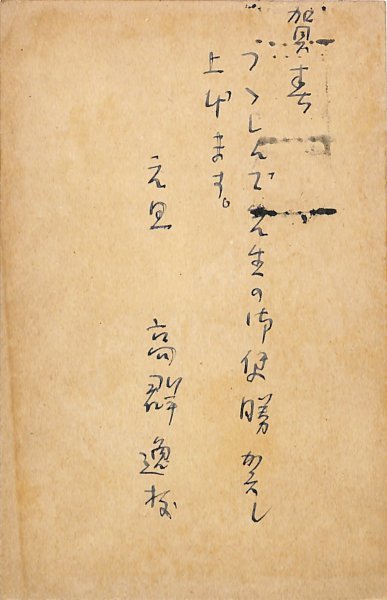 賀春
つゝしんで先生の御健勝
上げます。
元旦
高群逸枝